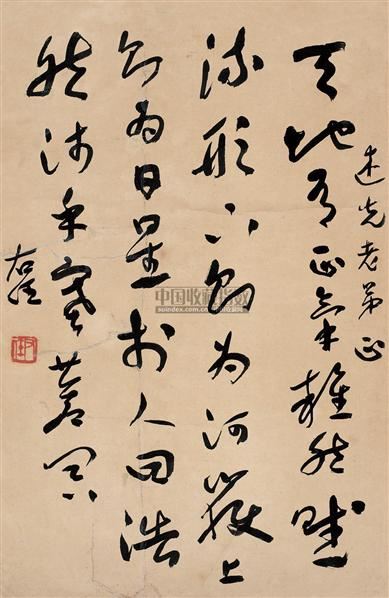 先老弟正
天地有正氣雜然賦
流形下則為河嶽上
則為日星於人曰浩
然沛乎塞蒼冥
右任
中国收藏指数